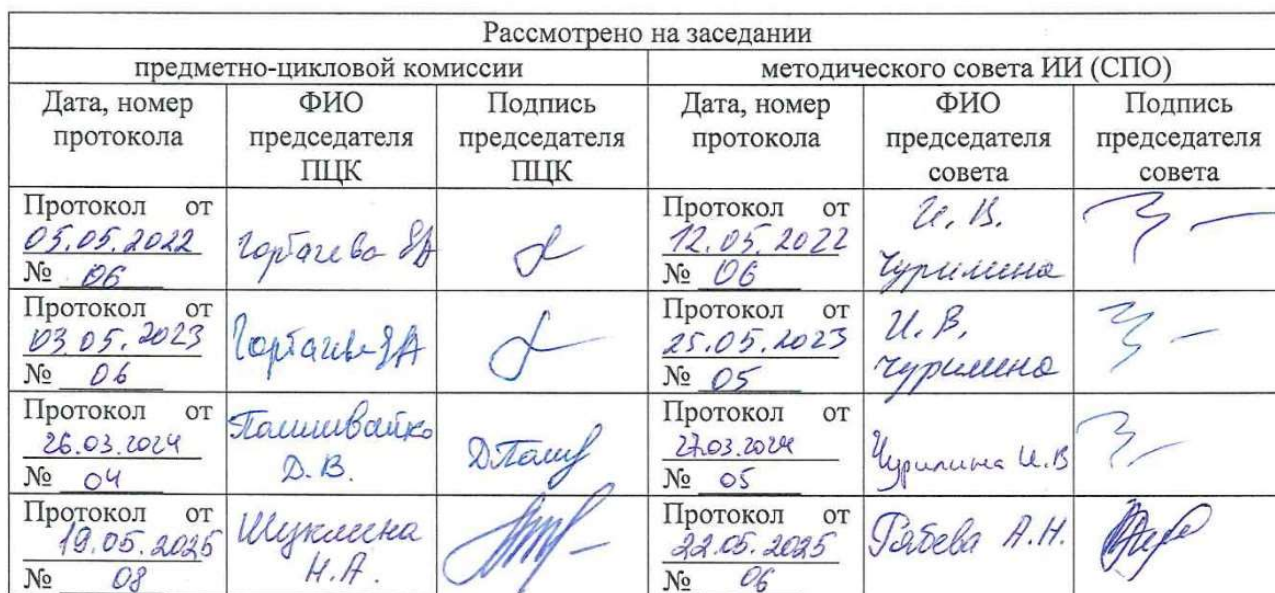 Рассмотрено на заседании
предметно-цикловой комиссии методического совета ИИ (СПО)
Дата, номер протокола ФИО председателя ПЦК Подпись председателя ПЦК Дата, номер протокола ФИО председателя совета Подпись председателя совета
Протокол от
05.05.2022
№ 06
Протокол от
12.05.2022
№ 06
И. В.
Чурилина
Протокол от
03.05.2023
№ 06
Протокол от
25.05.2023
№ 05
И. В.
Чурилина
Протокол от
26.03.2024
№ 04
Д. В.
Протокол от
27.03.2024
№ 05
Чурилина И.В
Протокол от
19.05.2025
№ 08
Шуклина
Н.А.
Протокол от
22.05.2025
№ 06
А.Н.